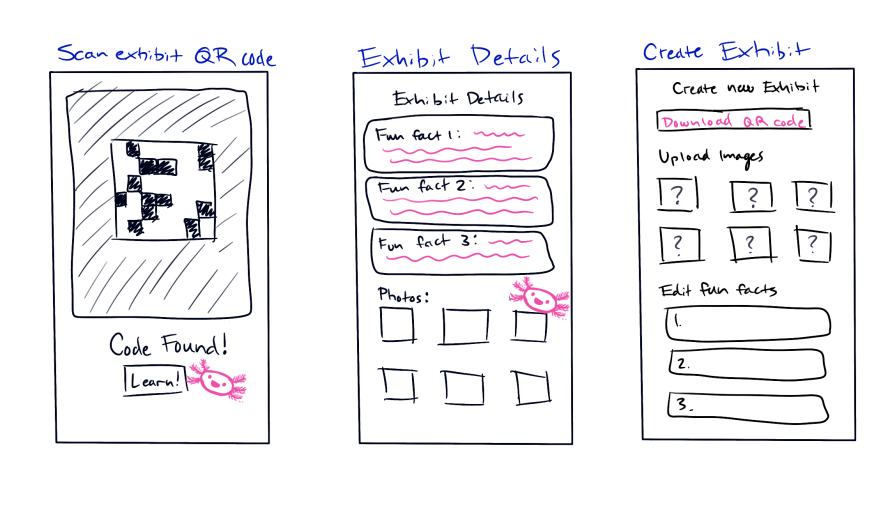 Scan exhibit QR code
Code Found!
Learn!
Exhibit Details
Exhibit Details
Fun fact 1:
Fun fact 2:
Fun fact 3:
Photos:
Create Exhibit
Create new Exhibit
Download QR code
Upload Images
? ? ?
? ? ?
Edit fun facts
1.
2.
3.